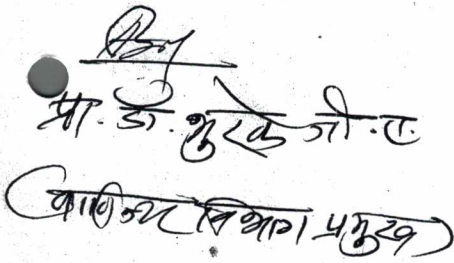 प्रा. डॉ. भुरके जी. ए.
(वाणिज्य विभाग प्रमुख)